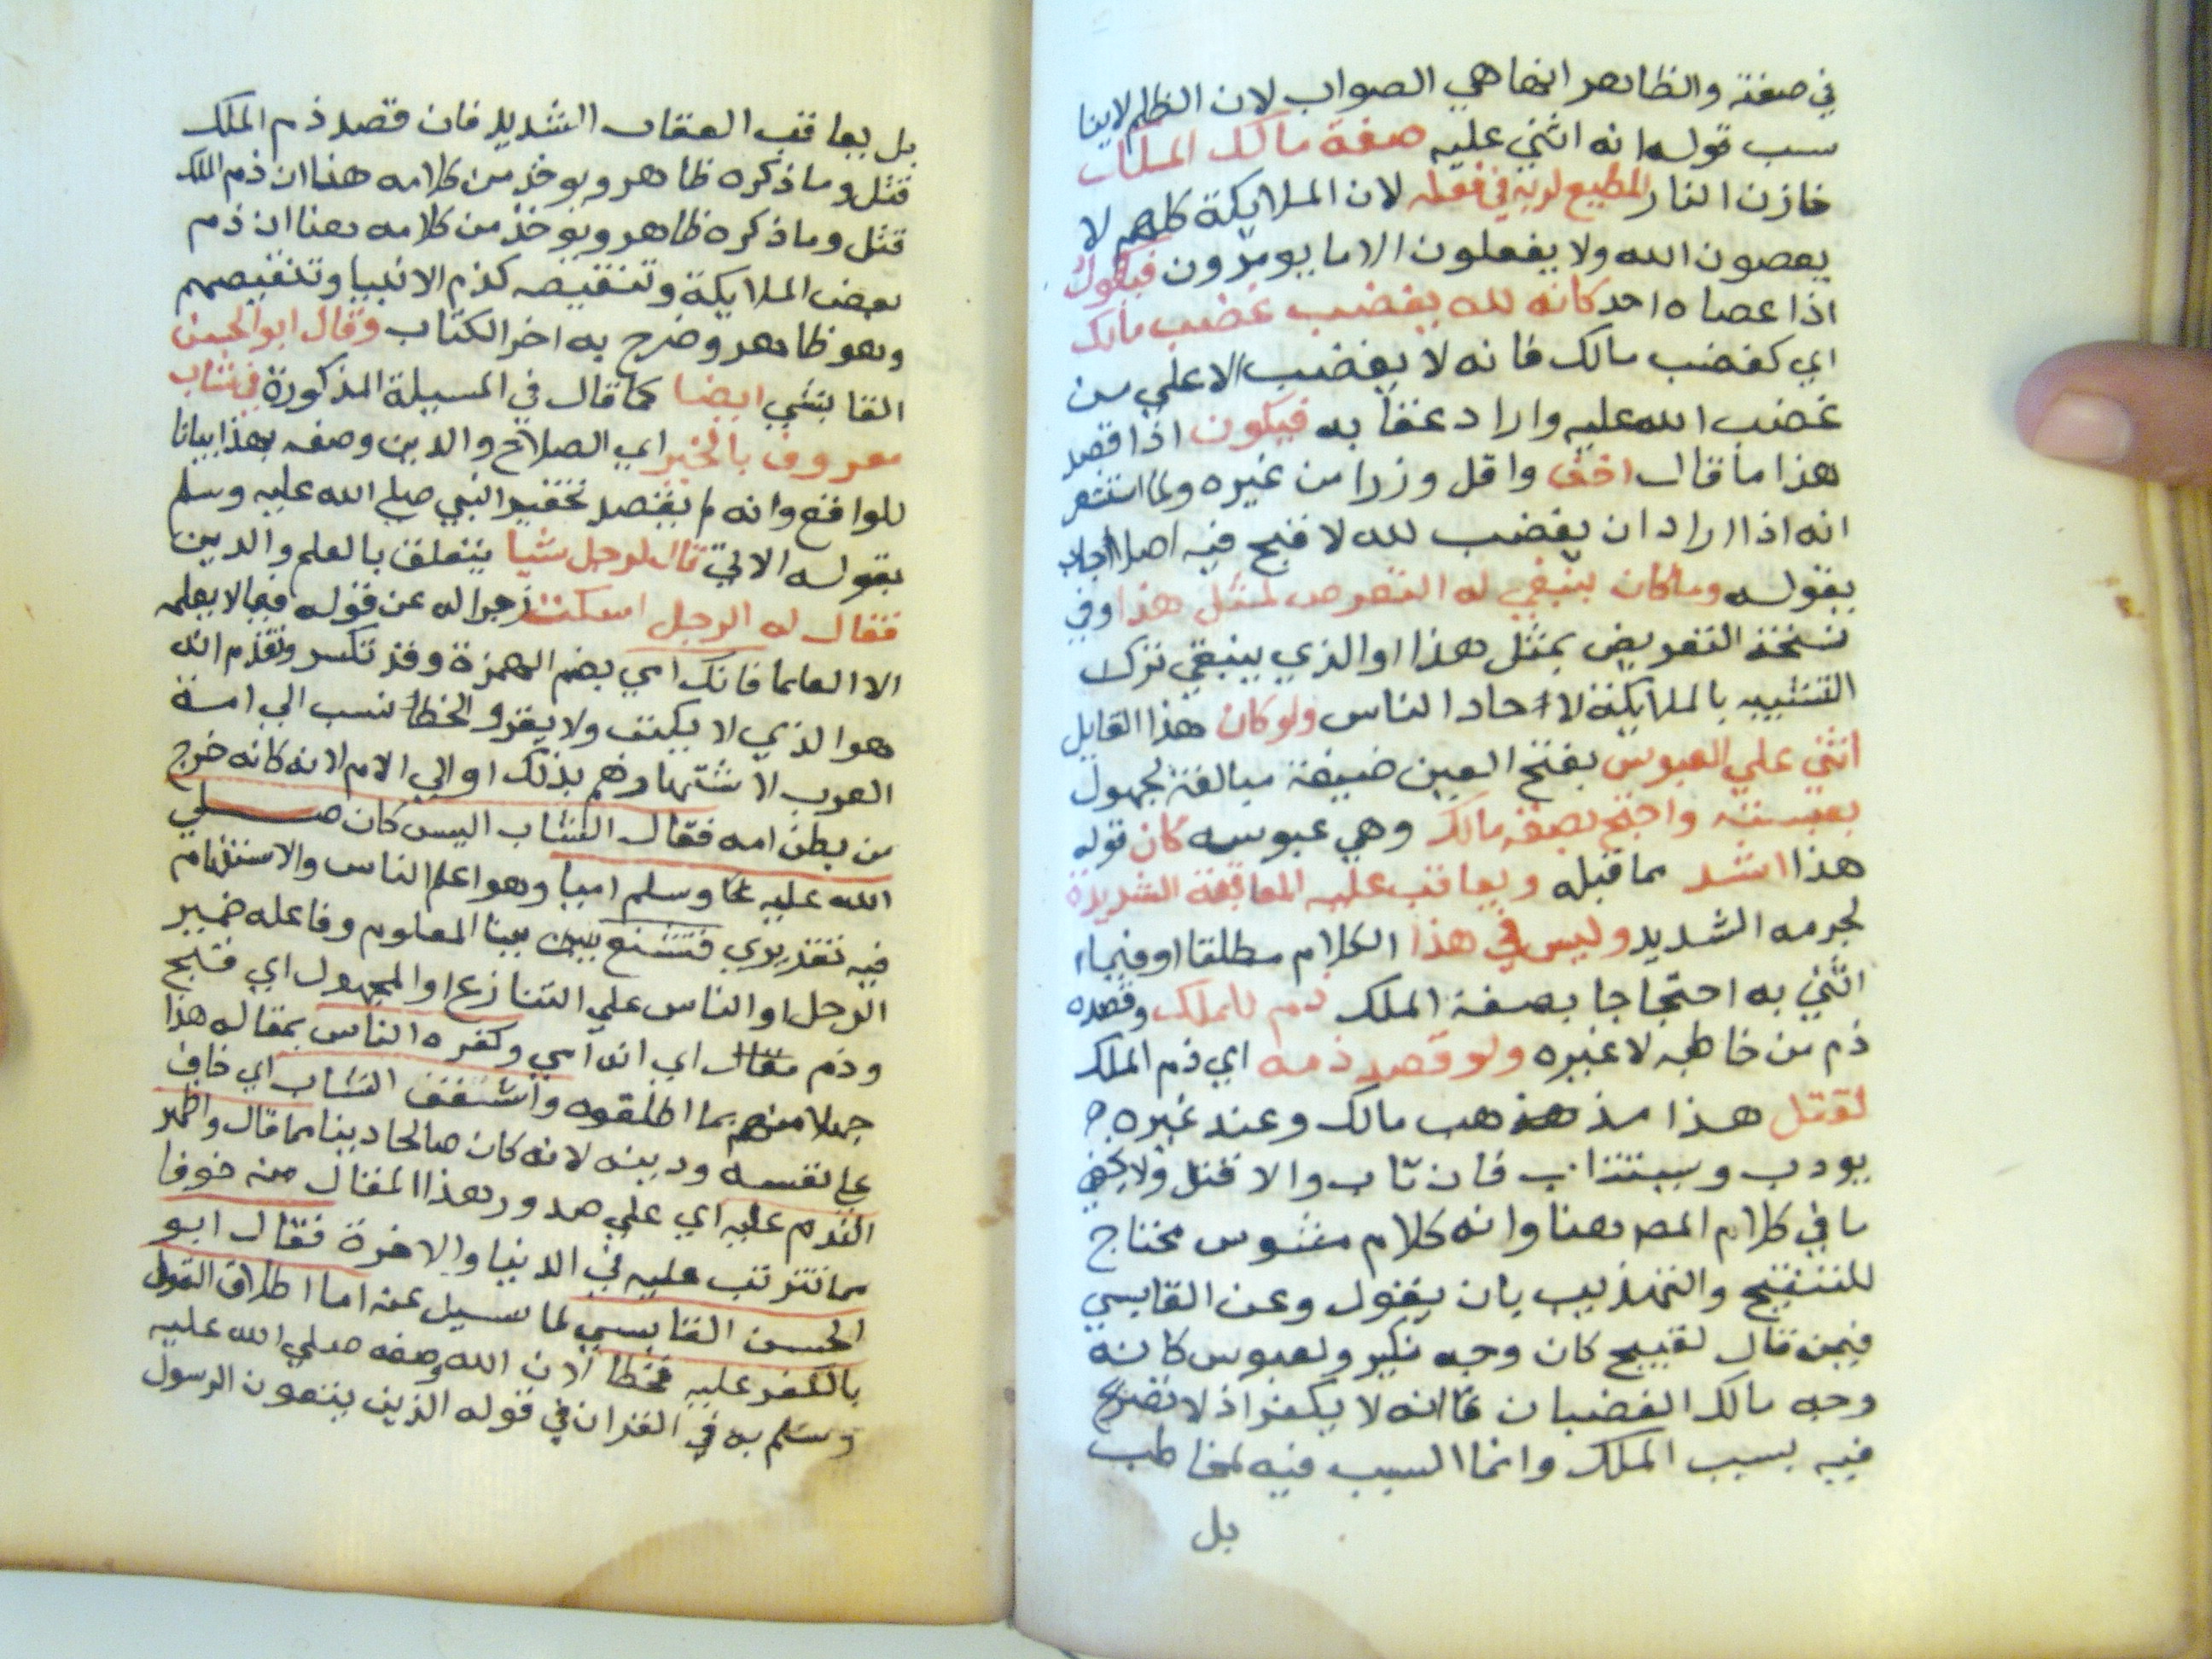 في صفته والظاهر انها هي الصواب لان الظلم لاينا
سب قوله انه اثني عليه صفة مالك الملك
خازن النار المطيع لربه في فعله لان الملايكة كلهم لا
يعصون الله ولا يفعلون الا ما يومرون فيكون
اذا عصاه احد كانه لله يغضب غضب مالك
اي كغضب مالك فانه لا يغضب الا علي من
غضب الله عليه واراد عقابه فيكون اذا قصد
هذا ما قال اخف واقل وزرا من غيره ولما استشعر
انه اذا اراد ان يغضب لله لا قبح فيه اصلا اجاب
بقوله وما كان ينبغي له التعرض لمثل هذا وفي
نسخة التعريض بمثل هذا او الذي ينبغي ترك
التشبيه بالملايكة لاحاد الناس ولو كان هذا القايل
اثني علي العبوس بفتح العين صيغة مبالغة لجهول
بعبسته واحتج بصفة مالك وهي عبوسه كان قوله
هذا اشد مما قبله ويعاقب عليه المعاقبة الشديدة
لجرمه الشديد وليس في هذا الكلام مطلقا او فيما
اثني به احتجاجا بصفة الملك ذم للملك وقصده
ذم من خاطبه لا غيره ولو قصد ذمه اي ذم الملك
لقتل هذا مذهب مالك وعند غيره
يودب ويستتاب فان تاب والا قتل ولا يخفي
ما في كلام المص هنا وانه كلام مشوس محتاج
للتنقيح والتهذيب بان يقول وعن القابسي
فيمن قال لقبيح كان وجه نكير ولعبوس كانه
وجه مالك الغضبان فانه لا يكفر اذ لا تصريح
فيه بسب الملك وانما السب فيه لمخاطب
بل
بل يعاقب العقاب الشديد فان قصد ذم الملك
قتل وما ذكره ظاهر ويوخذ من كلامه هذا ان ذم الملك
قتل وما ذكره ظاهر ويوخذ من كلامه هنا ان ذم
بعض الملايكة وتنقيصه كذم الانبيا وتنقيصهم
وهو ظاهر وصرح به اخر الكتاب وقال ابو الحسن
القابسي ايضا كما قال في المسيلة المذكورة في شاب
معروف بالخير اي الصلاح والدين وصفه بهذا بيانا
للواقع وانه لم يقصد تحقير النبي صلي الله عليه وسلم
بقوله الاتي قال لرجل شيا يتعلق بالعلم والدين
فقال له الرجل اسكت زجرا له عن قوله فيما لا يعلمه
الا العلما فانك امي بضم الهمزة وقد تكسر وتقدم انه
هو الذي لا يكتب ولا يقرو الخط نسب الي امة
العرب لاشتهارهم بذلك او الي الام لانه كانه خرج
من بطن امه فقال الشاب اليس كان صلي
الله عليه وسلم اميا وهو اعلم الناس والاستفهام
فيه تقديري فشنع ببنا المعلوم وفاعله ضمير
الرجل او الناس علي التنازع او المجهول اي قبح
وذم مقال اي انه امي وكفره الناس بمقاله هذا
جهلا منهم بما اطلقوه واشفق الشاب اي خاف
علي نفسه ودينه لانه كان صالحا دينا مما قال واظهر
الندم عليه اي علي صدور هذا المقال منه خوفا
مما تترتب عليه في الدنيا والاخرة فقال ابو
الحسن القابسي لما سيل عنه اما اطلاق القول
بالكفر عليه فخطا لان الله وصفه صلي الله عليه
وسلم به في القران في قوله الذين يتبعون الرسول